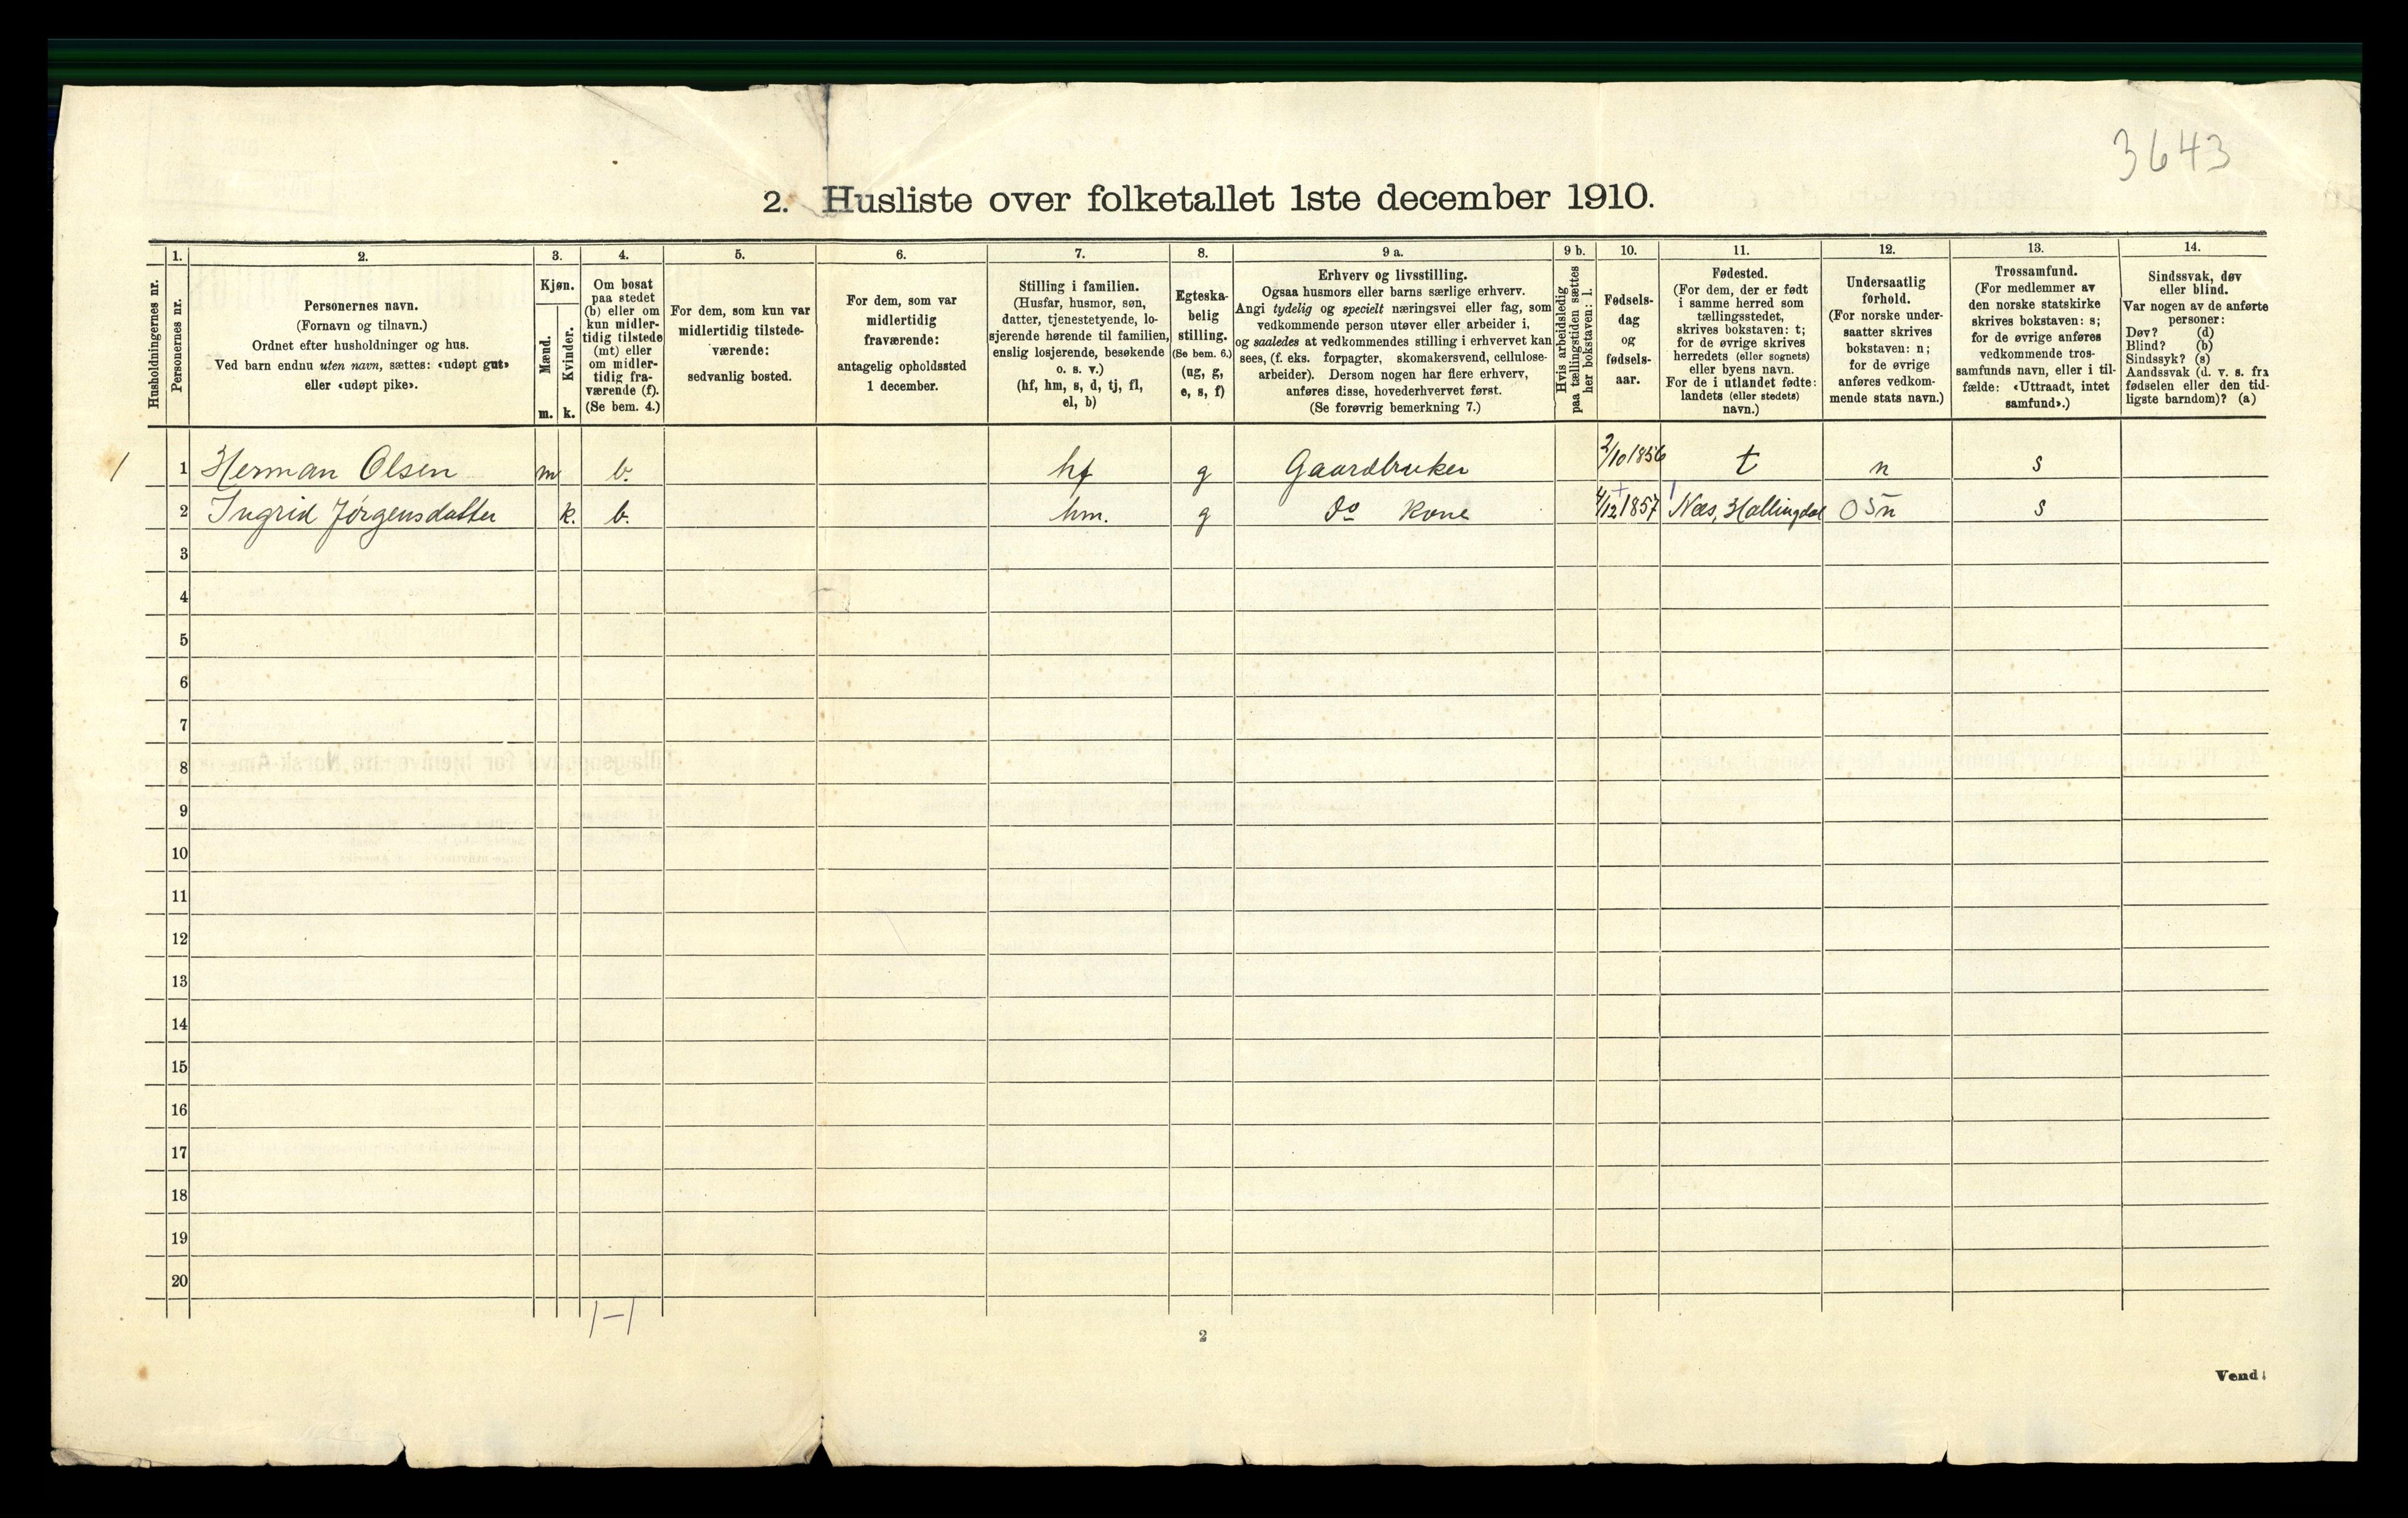 3643
2. Husliste over folketallet 1ste december 1910.
Husholdningernes nr.
1.
Personernes nr.
2.
Personernes navn.
(Fornavn og tilnavn.)
Ordnet efter husholdninger og hus.
Ved barn endnu uten navn, sættes: «udøpt gut»
eller «udøpt pike».
3.
Kjøn.
Mænd.
m.
Kvinder.
k.
4.
Om bosat
paa stedet
(b) eller om
kun midler-
tidig tilstede
(mt) eller
om midler-
tidig fra-
værende (f).
(Se bem. 4.)
5.
For dem, som kun var
midlertidig tilstede-
værende:
sedvanlig bosted.
6.
For dem, som var
midlertidig
fraværende:
antagelig opholdssted
1 december.
7.
Stilling i familien.
(Husfar, husmor, søn,
datter, tjenestetyende, lo-
sjerende hørende til familien,
enslig losjerende, besøkende
o. s. v.)
(hf, hm, s, d, tj, fl,
el, b)
8.
Egteska-
belig
stilling.
(Se bem. 6.)
(ug, g,
e, s, f)
9 a.
Erhverv og livsstilling.
Ogsaa husmors eller barns særlige erhverv.
Angi tydelig og specielt næringsvei eller fag, som
vedkommende person utøver eller arbeider i,
og saaledes at vedkommendes stilling i erhvervet kan
sees, (f. eks. forpagter, skomakersvend, cellulose-
arbeider). Dersom nogen har flere erhverv,
anføres disse, hovederhvervet først.
(Se forøvrig bemerkning 7.)
9 b.
Hvis arbeidsledig
paa tællingstiden sættes
her bokstaven: l.
10.
Fødsels-
dag
og
fødsels-
aar.
11.
Fødested.
(For dem, der er født
i samme herred som
tællingsstedet,
skrives bokstaven: t;
for de øvrige skrives
herredets (eller sognets)
eller byens navn.
For de i utlandet fødte:
landets (eller stedets)
navn.)
12.
Undersaatlig
forhold.
(For norske under-
saatter skrives
bokstaven: n;
for de øvrige
anføres vedkom-
mende stats navn.)
13.
Trossamfund.
(For medlemmer av
den norske statskirke
skrives bokstaven: s;
for de øvrige anføres
vedkommende tros-
samfunds navn, eller i til-
fælde: «Uttraadt, intet
samfund».)
14.
Sindssvak, døv
eller blind.
Var nogen av de anførte
personer:
Døv? (d)
Blind? (b)
Sindssyk? (s)
Aandssvak (d. v. s. fra
fødselen eller den tid-
ligste barndom)? (a)
1 1 Herman Olsen m b. hf g Gaardbruker 2/10 1856 t n s
2 Ingrid Jørgensdatter k. b. hm. g Do Kone 4/12 1857 Næs, Hallingdal 05 n s
3
4
5
6
7
8
9
10
11
12
13
14
15
16
17
18
19
20
1-1
2
Vend!